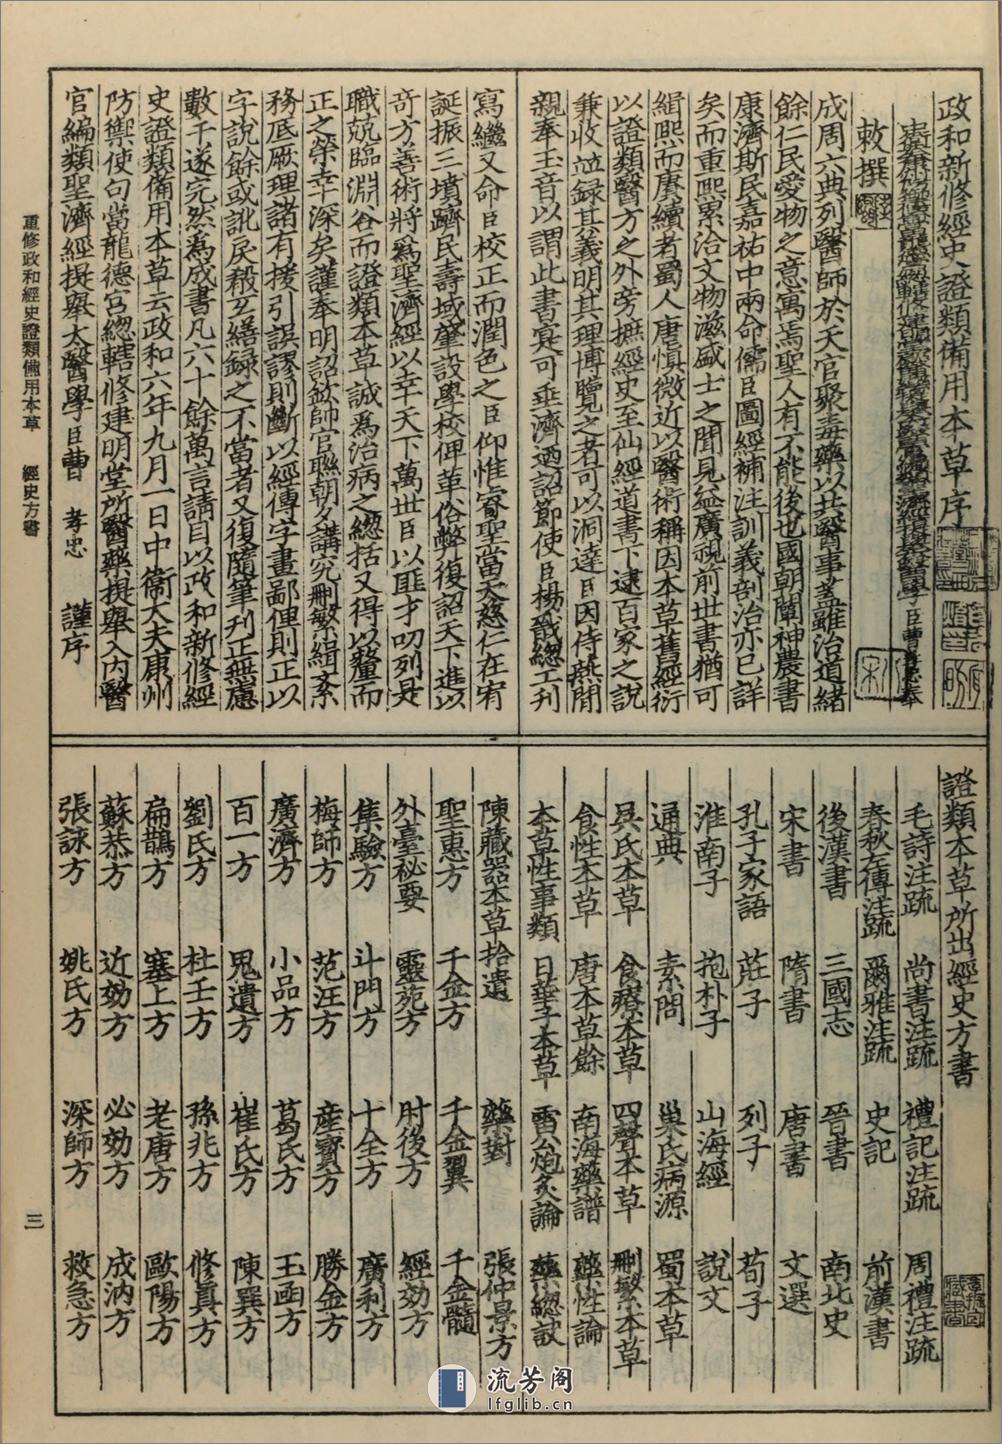 政和新修經史證類備用本草序
敕撰
成周六典列醫師於天官聚毒藥以共醫事蓋雖治道緒
餘仁民愛物之意寓焉聖人有不能後也國朝闡神農書
康濟斯民嘉祐中兩命儒臣圖經補注訓義剖治亦已詳
矣而重熙累洽文物滋盛士之聞見益廣視前世書猶可
緝熙而賡續者蜀人唐慎微近以醫術稱因本草舊經衍
以證類醫方之外旁摭經史至仙經道書下逮百家之說
兼收並録其義明其理博覽之者可以洞達臣因侍燕閒
親奉玉音以謂此書實可垂濟迺詔節使臣楊戩總工刊
寫繼又命臣校正而潤色之臣仰惟睿聖當天慈仁在宥
誕振三墳躋民壽域肇設學校俾革俗弊復詔天下進以
奇方善術將爲聖濟經以幸天下萬世臣以匪才叨列是
職兢臨淵谷而證類本草誠爲治病之總括又得以釐而
正之榮幸深矣謹奉明詔欽帥官聯朝夕講究刪繁緝紊
務底厥理諸有援引誤謬則斷以經傳字畫鄙俚則正以
字說餘或訛戾殽互繕録之不當者又復隨筆刊正無慮
數千遂完然爲成書凡六十餘萬言請目以政和新修經
史證類備用本草云政和六年九月一日中衞大夫康州
防禦使句當龍德宮總轄修建明堂所醫藥提舉入内醫
官編類聖濟經提舉太醫學臣曹 孝忠 謹序
證類本草所出經史方書
毛詩注疏 尚書注疏 禮記注疏 周禮注疏
春秋左傳注疏 爾雅注疏 史記 前漢書
後漢書 三國志 晉書 南北史
宋書 隋書 唐書 文選
孔子家語 莊子 列子 荀子
淮南子 抱朴子 山海經 說文
通典 素問 巢氏病源 蜀本草
吳氏本草 食療本草 四聲本草 刪繁本草
食性本草 唐本草餘 南海藥譜 藥性論
本草性事類 日華子本草 雷公炮炙論 藥總訣
陳藏器本草拾遺 藥對 張仲景方
聖惠方 千金方 千金翼 千金髓
外臺秘要 靈苑方 肘後方 經効方
集驗方 斗門方 十全方 廣利方
梅師方 范汪方 産寶方 勝金方
廣濟方 小品方 葛氏方 玉函方
百一方 鬼遺方 崔氏方 陳巽方
劉氏方 杜壬方 孫兆方 修眞方
扁鵲方 塞上方 老唐方 歐陽方
蘇恭方 近効方 必効方 成汭方
張詠方 姚氏方 深師方 救急方
重修政和經史證類備用本草 經史方書
三
流芳阁
lfglib.cn